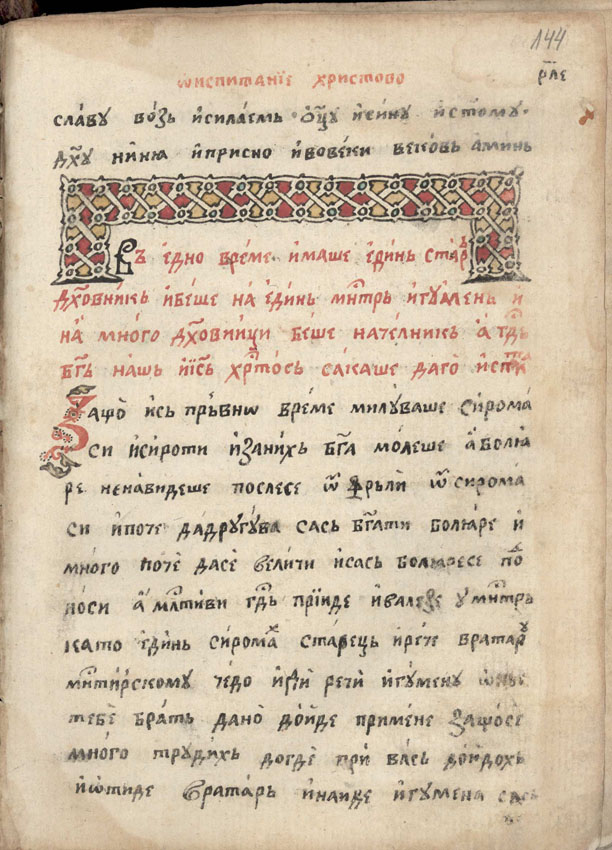 144
рл҃е
ѿиспитанїе христово
славу возь исилаемь ѻц҃у исину исто҃му
дх҃у ниня иприсно ивовеки вековь аминь
Въ едно време имаше единь старъ
дх҃овникь ибеше на единь мнтрь игумень и
на много дх҃овници беше нателникь а гдⷭь
бг҃ь нашь ії҃сь хрт҃ось сакаше даго испита
Зафо ись првнѡ време милуваше сирома
си исироти изанихь бг҃а молеше а болꙗ
ре ненавидеше послесе ѿфрьли ѿсирома
си ипоче дадругува сась бг҃ати болꙗре и
много поче дасе велити исась болꙗресе по
носи а млⷭтиви гдⷭь прїиде ивалезе умнтрь
като единь сиромах старець ирече вратару
мнтирскому чедо иди речи игумену
тебе брать дано дойде примене зафосе
много трудихь догде при вась дойдохь
иѡтиде вратарь инаиде игумена сась